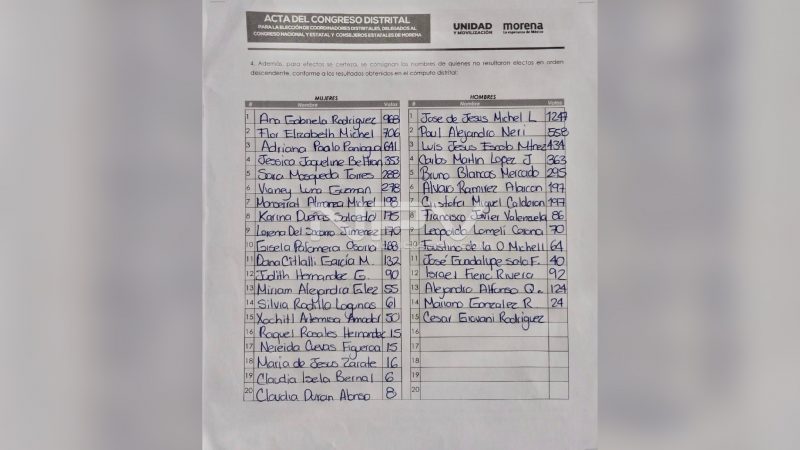 ACTA DEL CONGRESO DISTRITAL
PARA LA ELECCIÓN DE COORDINADORES DISTRITALES, DELEGADOS AL
CONGRESO NACIONAL Y ESTATAL Y CONSEJEROS ESTATALES DE MORENA
UNIDAD
Y MOVILIZACIÓN
morena
La esperanza de México
4. Además, para efectos se certeza, se consignan los nombres de quienes no resultaron electos en orden
descendente, conforme a los resultados obtenidos en el computo distrital:
MUJERES
# Nombre Votos
1 Ana Gabriela Rodriguez 968
2 Flor Elizabeth Michel 706
3 Adriana Paola Paniagua 641
4 Jessica Jaqueline Beltran 353
5 Sara Mosqueda Torres 288
6 Vianey Luna Guzman 278
7 Monserrat Almanza Michel 198
8 Karina Dueñas Salcedo 175
9 Lorena Del Socorro Jimenez 170
10 Gisela Palomera Osoria 168
11 Dana Citlalli Garcia M. 132
12 Judith Hernandez G. 90
13 Miriam Alejandra Glez 55
14 Silvia Rodillo Lagunas 61
15 Xochitl Artemisa Amador 50
16 Raquel Rosales Hernandez 15
17 Nereida Cuevas Figueroa 15
18 Maria de Jesus Zarate 16
19 Claudia Isela Bernal 6
20 Claudia Duran Alonso 8
HOMBRES
# Nombre Votos
1 Jose de Jesus Michel L 1247
2 Paul Alejandro Neri 558
3 Luis Jesus Escob Mtnez 434
4 Carlos Martin Lopez J 363
5 Bruno Blancas Mercado 295
6 Alvaro Ramirez Alarcon 197
7 Cristofer Miguel Calderon 197
8 Francisco Javier Valenzuela 86
9 Leopoldo Lomelí Carona 70
10 Faustino de la O Michell 64
11 José Guadalupe soto F. 40
12 Israel Fieric Rivera 92
13 Alejandro Alfonso Q. 124
14 Mariano Gonzalez R 24
15 Cesar Giovani Rodriguez
16
17
18
19
20